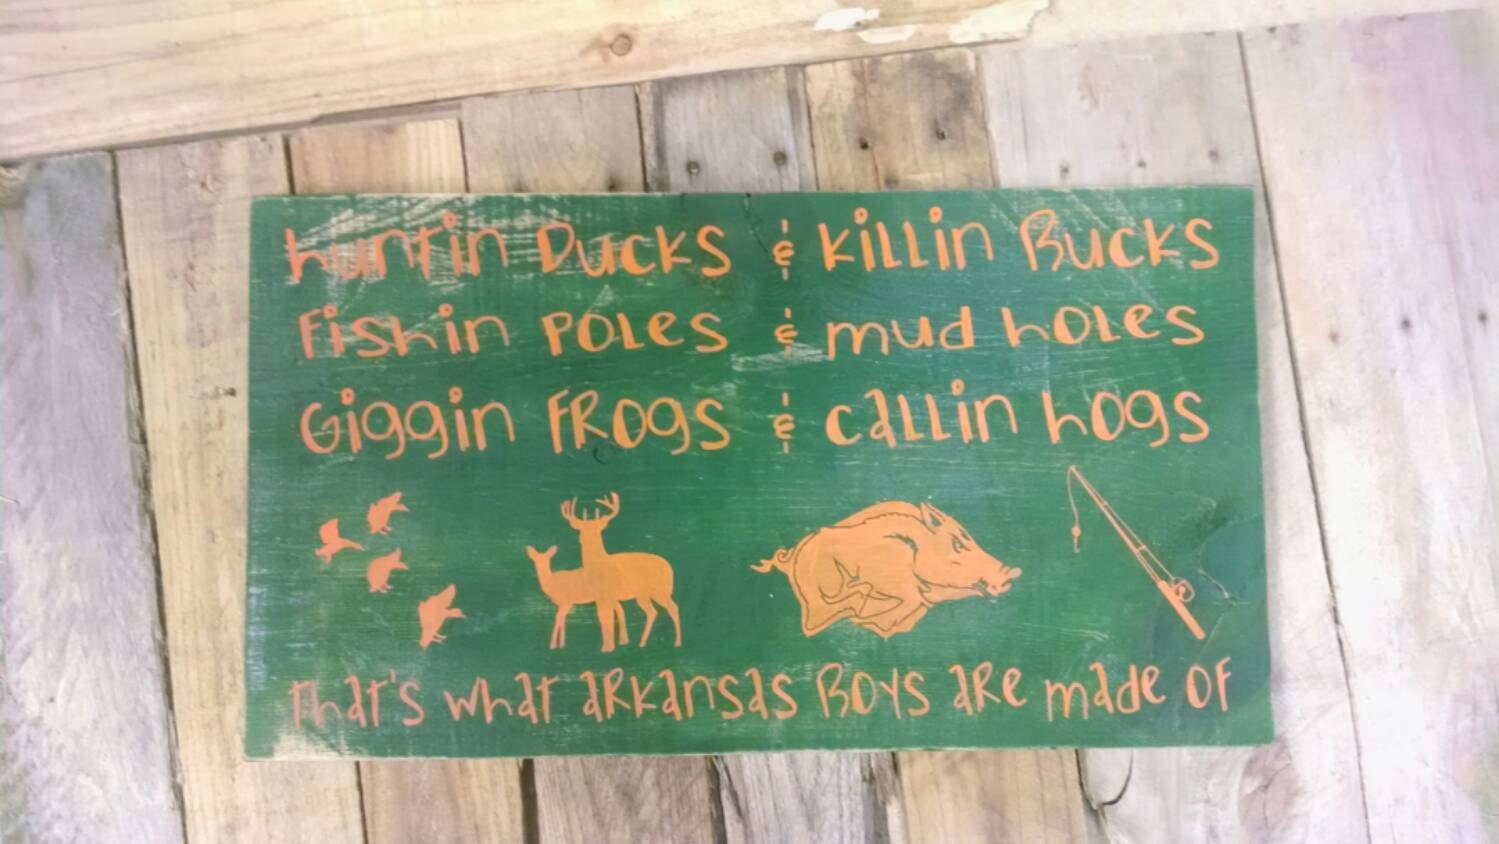 Huntin Ducks & Killin Bucks
Fishin Poles & mud holes
Giggin Frogs & callin hogs
That's what arkansas Boys are made of